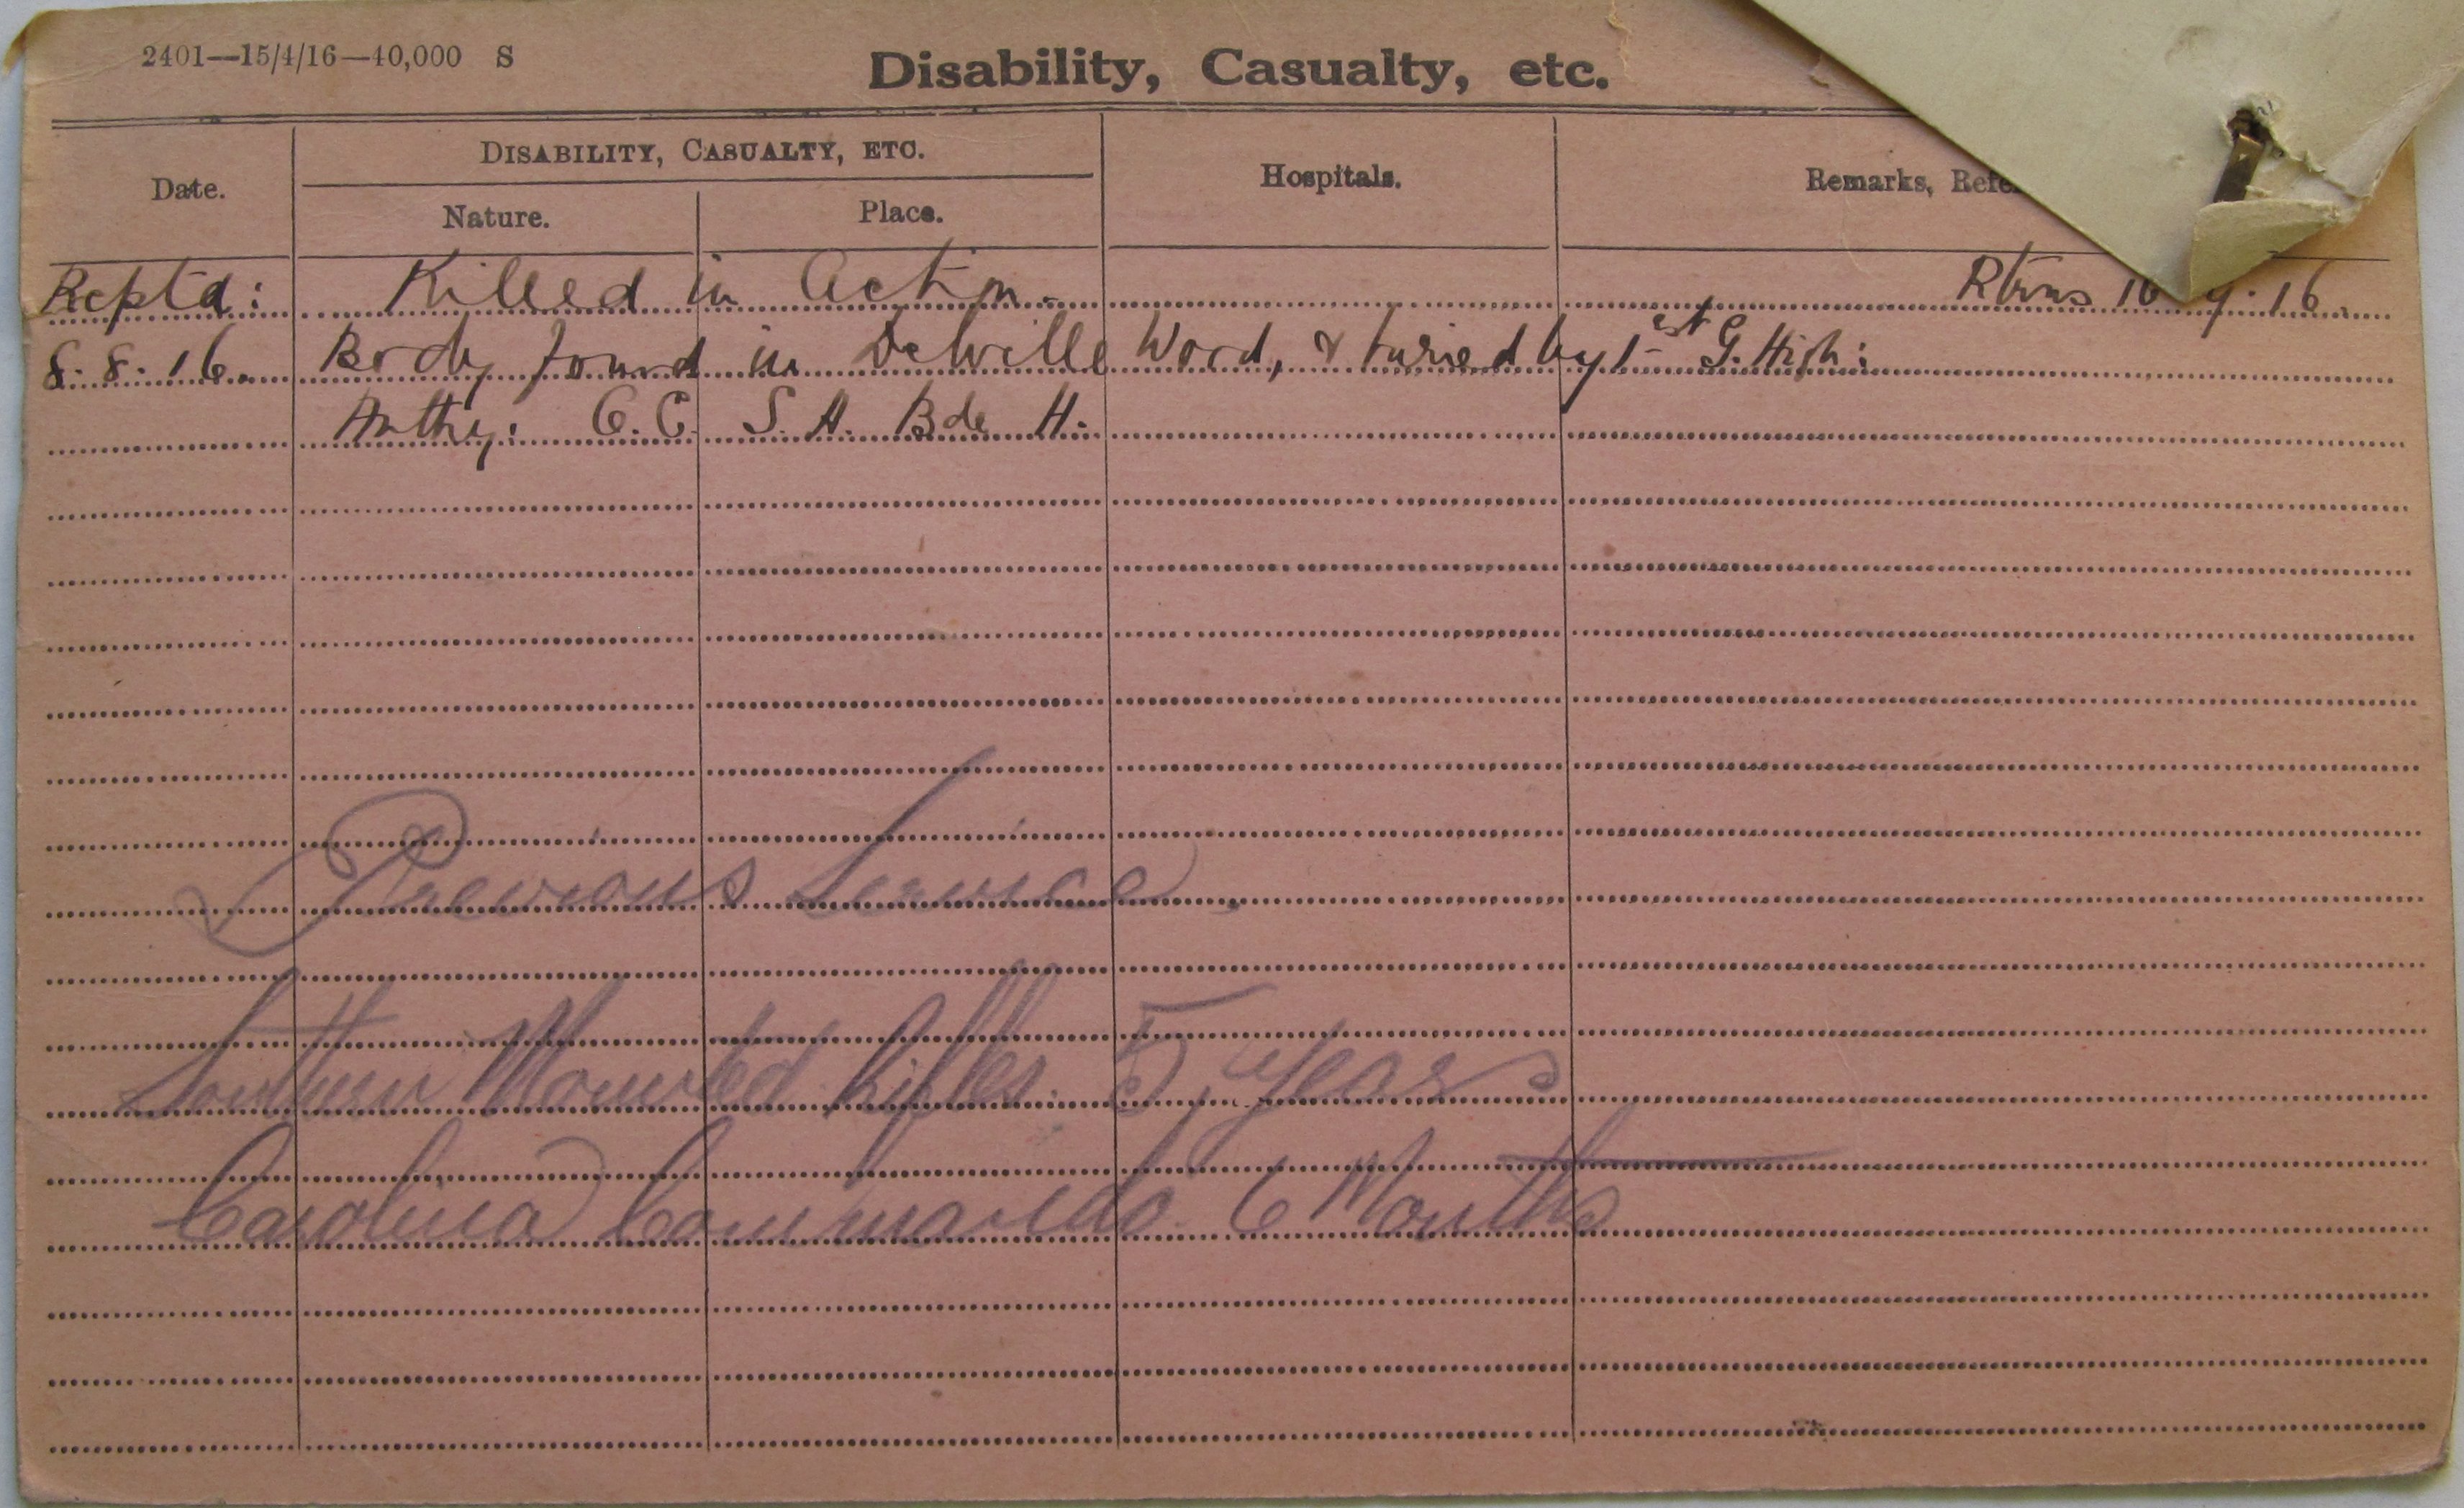 2401—15/4/16—40,000 S
Disability, Casualty, etc.
Date.
DISABILITY, CASUALTY, ETC.
Nature.
Place.
Hospitals.
Remarks,
Reptd: Killed in Action. 9.16.
8.8.16. Body found in Delville Wood, & buried by 1st G. High:
Authy: O.C. S. A. Bde H.
Previous Service
Southern Mounted Rifles. 5 Years
Carolina Commando 6 Months